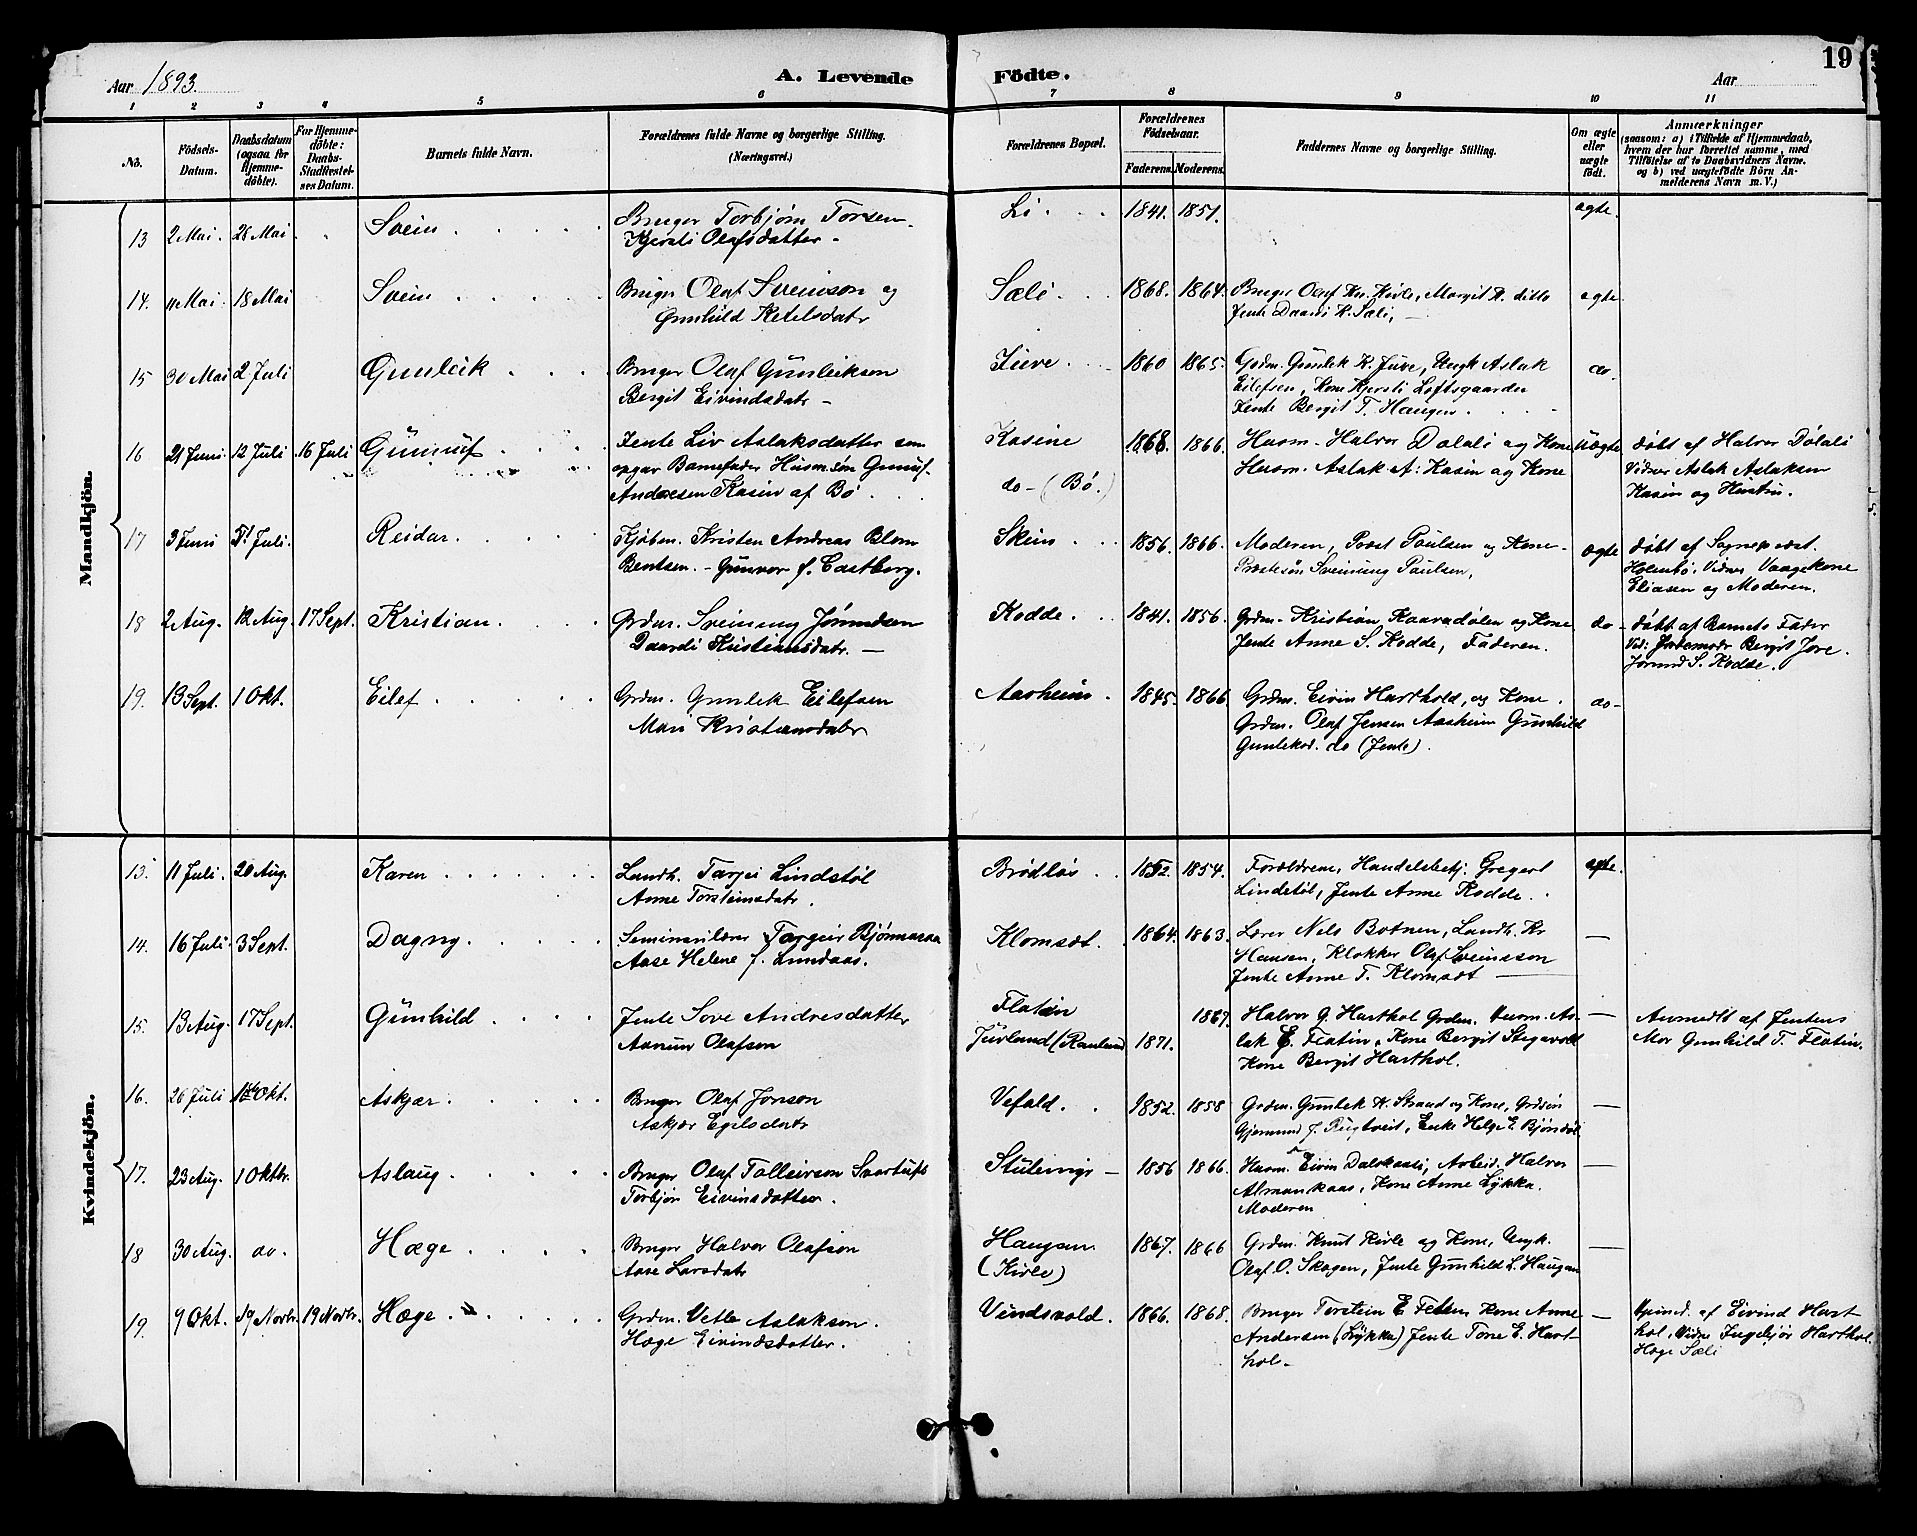 19
Aar 1893. A. Levende Födte. Aar
1 2 3 4 5 6 7 8 9 10 11
No. Födsels-Datum. Daabsdatum (ogsaa for Hjemme-döbte). For Hjemme-döbte: Daabs-Stadfæstel-ses Datum. Barnets fulde Navn. Forældrenes fulde Navne og borgerlige Stilling. (Næringsvei.) Forældrenes Bopæl. Forældrenes Födselsaar. Faderens. Moderens. Faddernes Navne og borgerlige Stilling. Om ægte eller uægte födt. Anmærkninger (saasom: a) i Tilfælde af Hjemmedaab, hvem der har forrettet samme, med Tilföielse af to Daabsvidners Navne. og b) ved uægtefödte Börn An-melderens Navn m. V.)
Mandkjön.
13 2 Mai. 28 Mai Svein Bruger Torbjørn Torsen Li 1841. 1851. ægte.
Kjersti Olafsdatter
14. 4 Mai. 18 Mai Svein Bruger Olaf Sveinson og Sæli 1868. 1864. Bruger Olaf Kn. Kivle, Margit K. ditto ægte
Gunhild Ketelsdatr Jente Daardi K. Sæli,
15 30 Mai 2 Juli Gunleik Bruger Olaf Gunleikson Juve 1860 1865. Grdm. Gunlek K. Juve, Ungk Aslak do.
Bergit Eivindsdatr Eilefsen, Kone Kjersti Loftsgaarden
Jente Bergit T. Haugen
16 21 Juni. 12 Juli 16 Juli Gunnuf Jente Liv Aslaksdatter som Kasine 1868. 1866. Husm. Halvor Dølali og Kone Uægte døbt af Halvor Dölali
opgav Barnefader Husm.søn Gunuf do (Bø.) Husm. Aslak A. Kasin og Kone Vidner Aslak Aslaksen
Andresen Kasin af Bø Kasin og Hustru.
17 3 Juni Juli. Reidar Kjøbm. Kristen Andreas Blom Skien 1856. 1866. Moderen, Præst Paulsen og Kone ægte døbt af Sognepræst.
Bentsen. Gunvor f. Castberg. Præstesøn Sveinung Paulsen, Holmbø. Vidner Vaagekone
Eliasen og Moderen.
18 2 Aug. 12 Aug. 17 Sept. Kristian Grdm. Sveinung Jørundsen Kodde 1841. 1856. Grdm. Kristian Kaavadølen og Kone do døbt af Barnets Fader
Daardi Kristiansdatr. Jente Anne S. Kodde, Faderen. Vid: Jordemodr Bergit Jore.
Jørund S. Kodde.
19. 13 Sept. 1 Okt. Eilef Grdm. Gunlek Eilefsen Aasheim 1845. 1866. Grdm. Eivin Harthold, og Kone. do
Mari Kristiansdatr Grdm. Olaf Jensen Aasheim Gunhild
Gunleksd. do (Jente).
Kvindekjön.
13. 11 Juli. 20 Aug. Karen Landh. Tarjei Lindstøl Brødløs 1852. 1854. Forældrene, Handelsbetj. Gregert ægte.
Anne Torsteinsdatr. Lindstöl, Jente Anne Kodde.
14. 16 Juli. 3 Sept. Dagny Seminarilærer Targeir Bjønnaraa Klomsæt. 1864. 1863. Lærer Nels Botnen, Landh. Kr
Aase Helene f. Lundaas. Hansen, Klokker Olaf Sveinsson
Jente Anne T. Klomsæt
15. 13 Aug. 17 Sept. Gunhild Jente Sove Andresdatter Flatin 1867. Halvor G. Harthol Grdm. Husm. As- Anmeldt af Jentens
Aanun Olafson Juvland (Rauland 1871. lak E. Flatin, Kone Bergit Stegavoll Mor Gunhild T. Flatin.
Kone Bergit Harthol.
16. 26 Juli Okt. Askjær Bruger Olaf Jonson Vefald 1852. 1858 Grdm. Gunlek H. Strand og Kone, Grdsön
Askjær Egilsdatr Gjermund J. Rugtveit, Enke Helge E. Bjönsdöl
17. 23 Aug. 1 Oktbr. Aslaug Bruger Olaf Talleivson Svartufs Stulings 1856 1866. Husm. Eivin Dalskaali, Arbeid. Halvor
Torbjør Eivinsdatter. Almankaas, Kone Anne Lykka.
Moderen
18 30 Aug. do. Hæge Bruger Halvor Olafson Haugen 1867. 1866 Grdm. Knut Kivle og Kone, Ungk.
Aase Larsdatr (Kivle) Olaf O. Skogen, Jente Gunhild L. Haugen
19. 9 Okt. 19 Novbr. 19 Novbr. Hæge Grdm. Vetle Aslakson. Vindsvold. 1866. 1868. Bruger Torstein E Kone Anne af Eivind Hart
Hæge Eivindsdatter. Andersen (Lykka) Jente Tone E. Hart- hol, Vidner Ingebjør Harthol.
hol Hæge Sæli